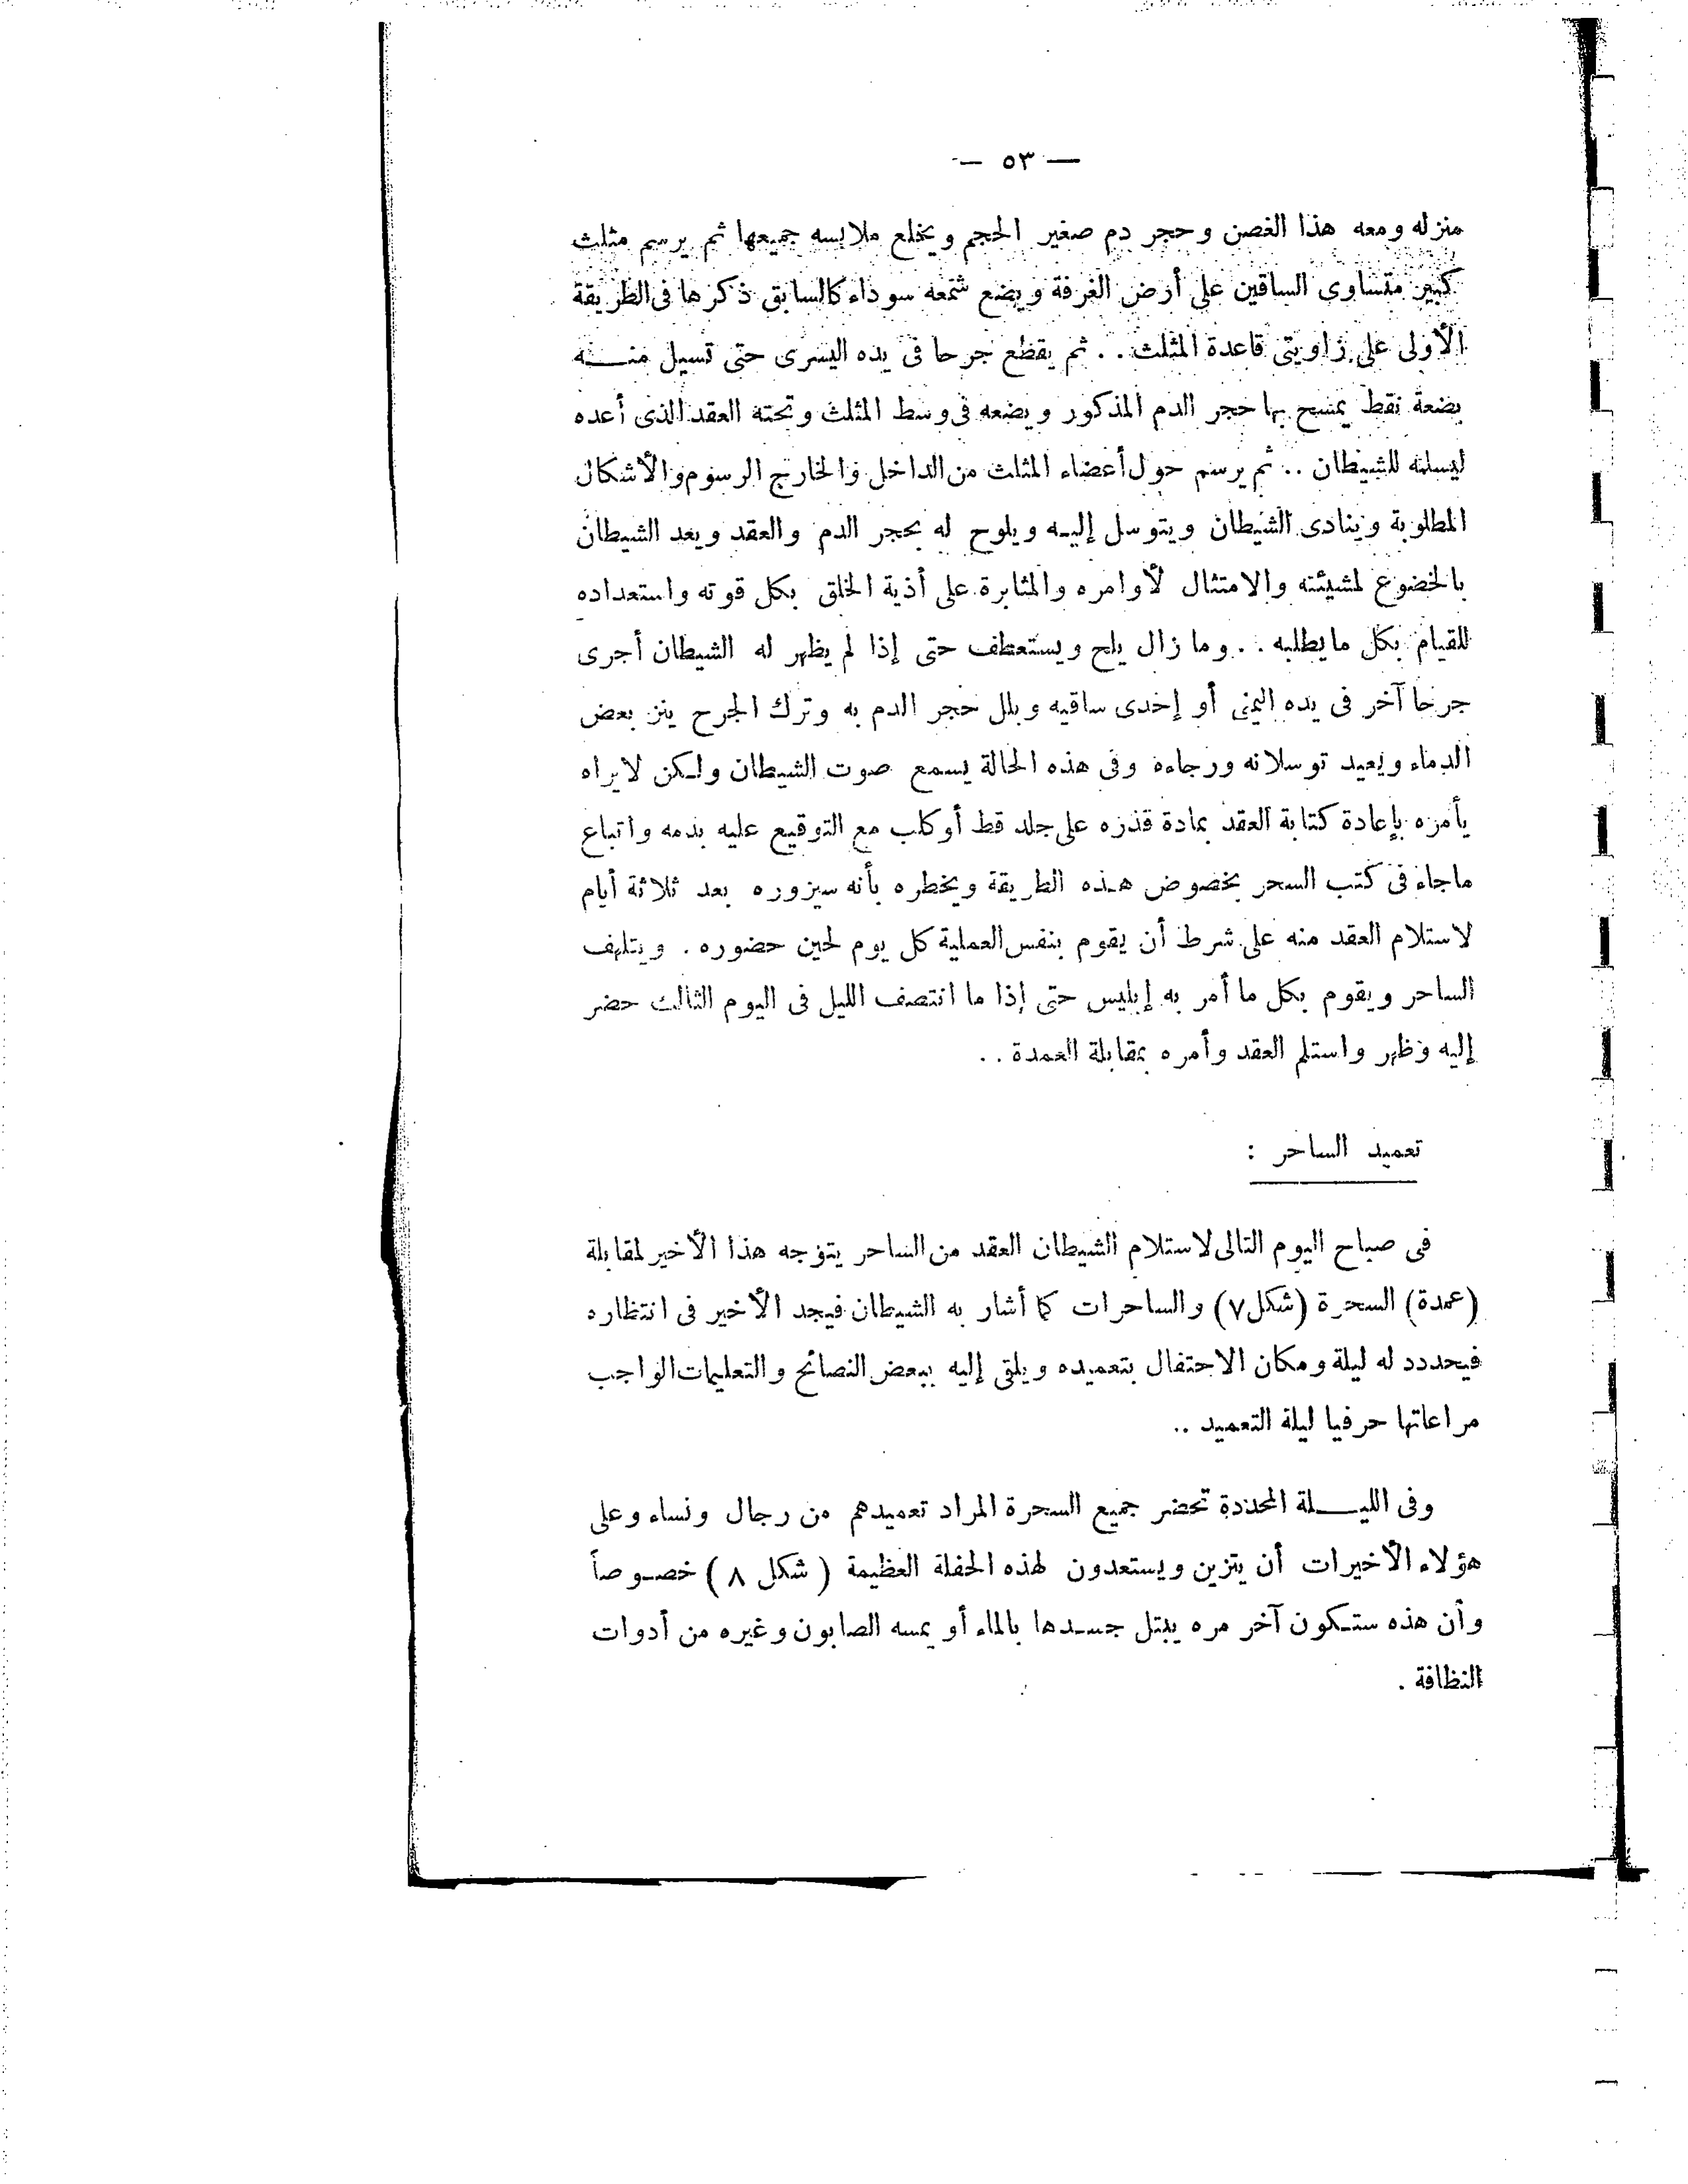 — ٥٣ —
منزله ومعه هذا الغصن وحجر دم صغير الحجم ويخلع ملابسه جميعها ثم يرسم مثلث
كبير متساوى الساقين على أرض الغرفة ويضع شمعه سوداء كالسابق ذكرها فى الطريقة
الأولى على زاويتى قاعدة المثلث . . ثم يقطع جرحا فى يده اليسرى حتى تسيل منـــه
بضعة نقط يمسح بها حجر الدم المذكور ويضعه فى وسط المثلث وتحته العقد الذى أعده
ليسلمه للشيطان .. ثم يرسم حول أعضاء المثلث من الداخل والخارج الرسوم والأشكال
المطلوبة وينادى الشيطان ويتوسل إليـه ويلوح له بحجر الدم والعقد ويعد الشيطان
بالخضوع لمشيئته والامتثال لأوامره والمثابرة على أذية الخلق بكل قوته واستعداده
للقيام بكل مايطلبه . . وما زال يلح ويستعطف حتى إذا لم يظهر له الشيطان أجرى
جرحا آخر فى يده اليمنى أو إحدى ساقيه وبلل حجر الدم به وترك الجرح ينز بعض
الدماء ويعيد توسلاته ورجاءه وفى هذه الحالة يسمع صوت الشيطان ولـكن لايراه
يأمره بإعادة كتابة العقد بمادة قذره على جلد قط أوكلب مع التوقيع عليه بدمه واتباع
ماجاء فى كتب السحر بخصوص هـذه الطريقة ويخطره بأنه سيزوره بعد ثلاثة أيام
لاستلام العقد منه على شرط أن يقوم بنفس العملية كل يوم لحين حضوره . ويتلهف
الساحر ويقوم بكل ما أمر به إبليس حتى إذا ما انتصف الليل فى اليوم الثالث حضر
إليه وظهر واستلم العقد وأمره بمقابلة العمدة . .
تعميد الساحر :
فى صباح اليوم التالى لاستلام الشيطان العقد من الساحر يتوجه هذا الأخير لمقابلة
(عمدة) السحرة (شكل ٧) والساحرات كما أشار به الشيطان فيجد الأخير فى انتظاره
فيحدد له ليلة ومكان الاحتفال بتعميده ويلقى إليه ببعض النصائح والتعليمات الواجب
مراعاتها حرفيا ليلة التعميد ..
وفى الليـــلة المحددة تحضر جميع السحرة المراد تعميدهم من رجال ونساء وعلى
هؤلاء الأخيرات أن يتزين ويستعدون لهذه الحفلة العظيمة ( شكل ٨ ) خصـوصاً
وأن هذه ستـكون آخر مره يبتل جسـدها بالماء أو يمسه الصابون وغيره من أدوات
النظافة .